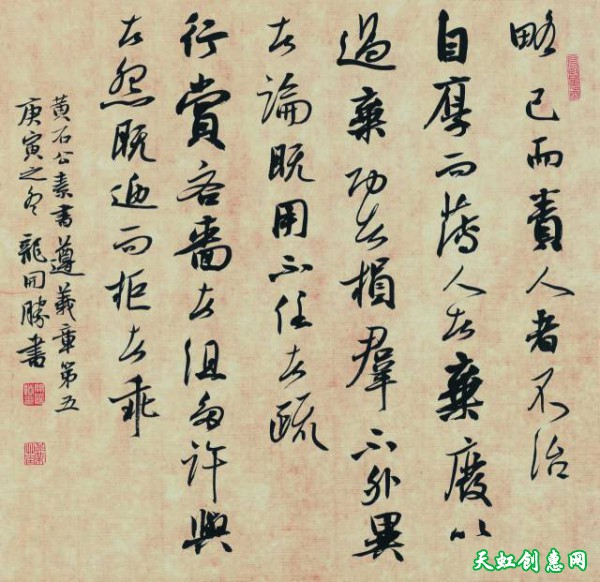 略己而責人者不治
自厚而薄人者棄廢以
過棄功者損羣下外異
者論既用不任者疏
行賞吝嗇者沮多許與
者怨既迎而拒者乖
黃石公素書遵義章第五
庚寅之冬 龍開勝書
天虹创惠网